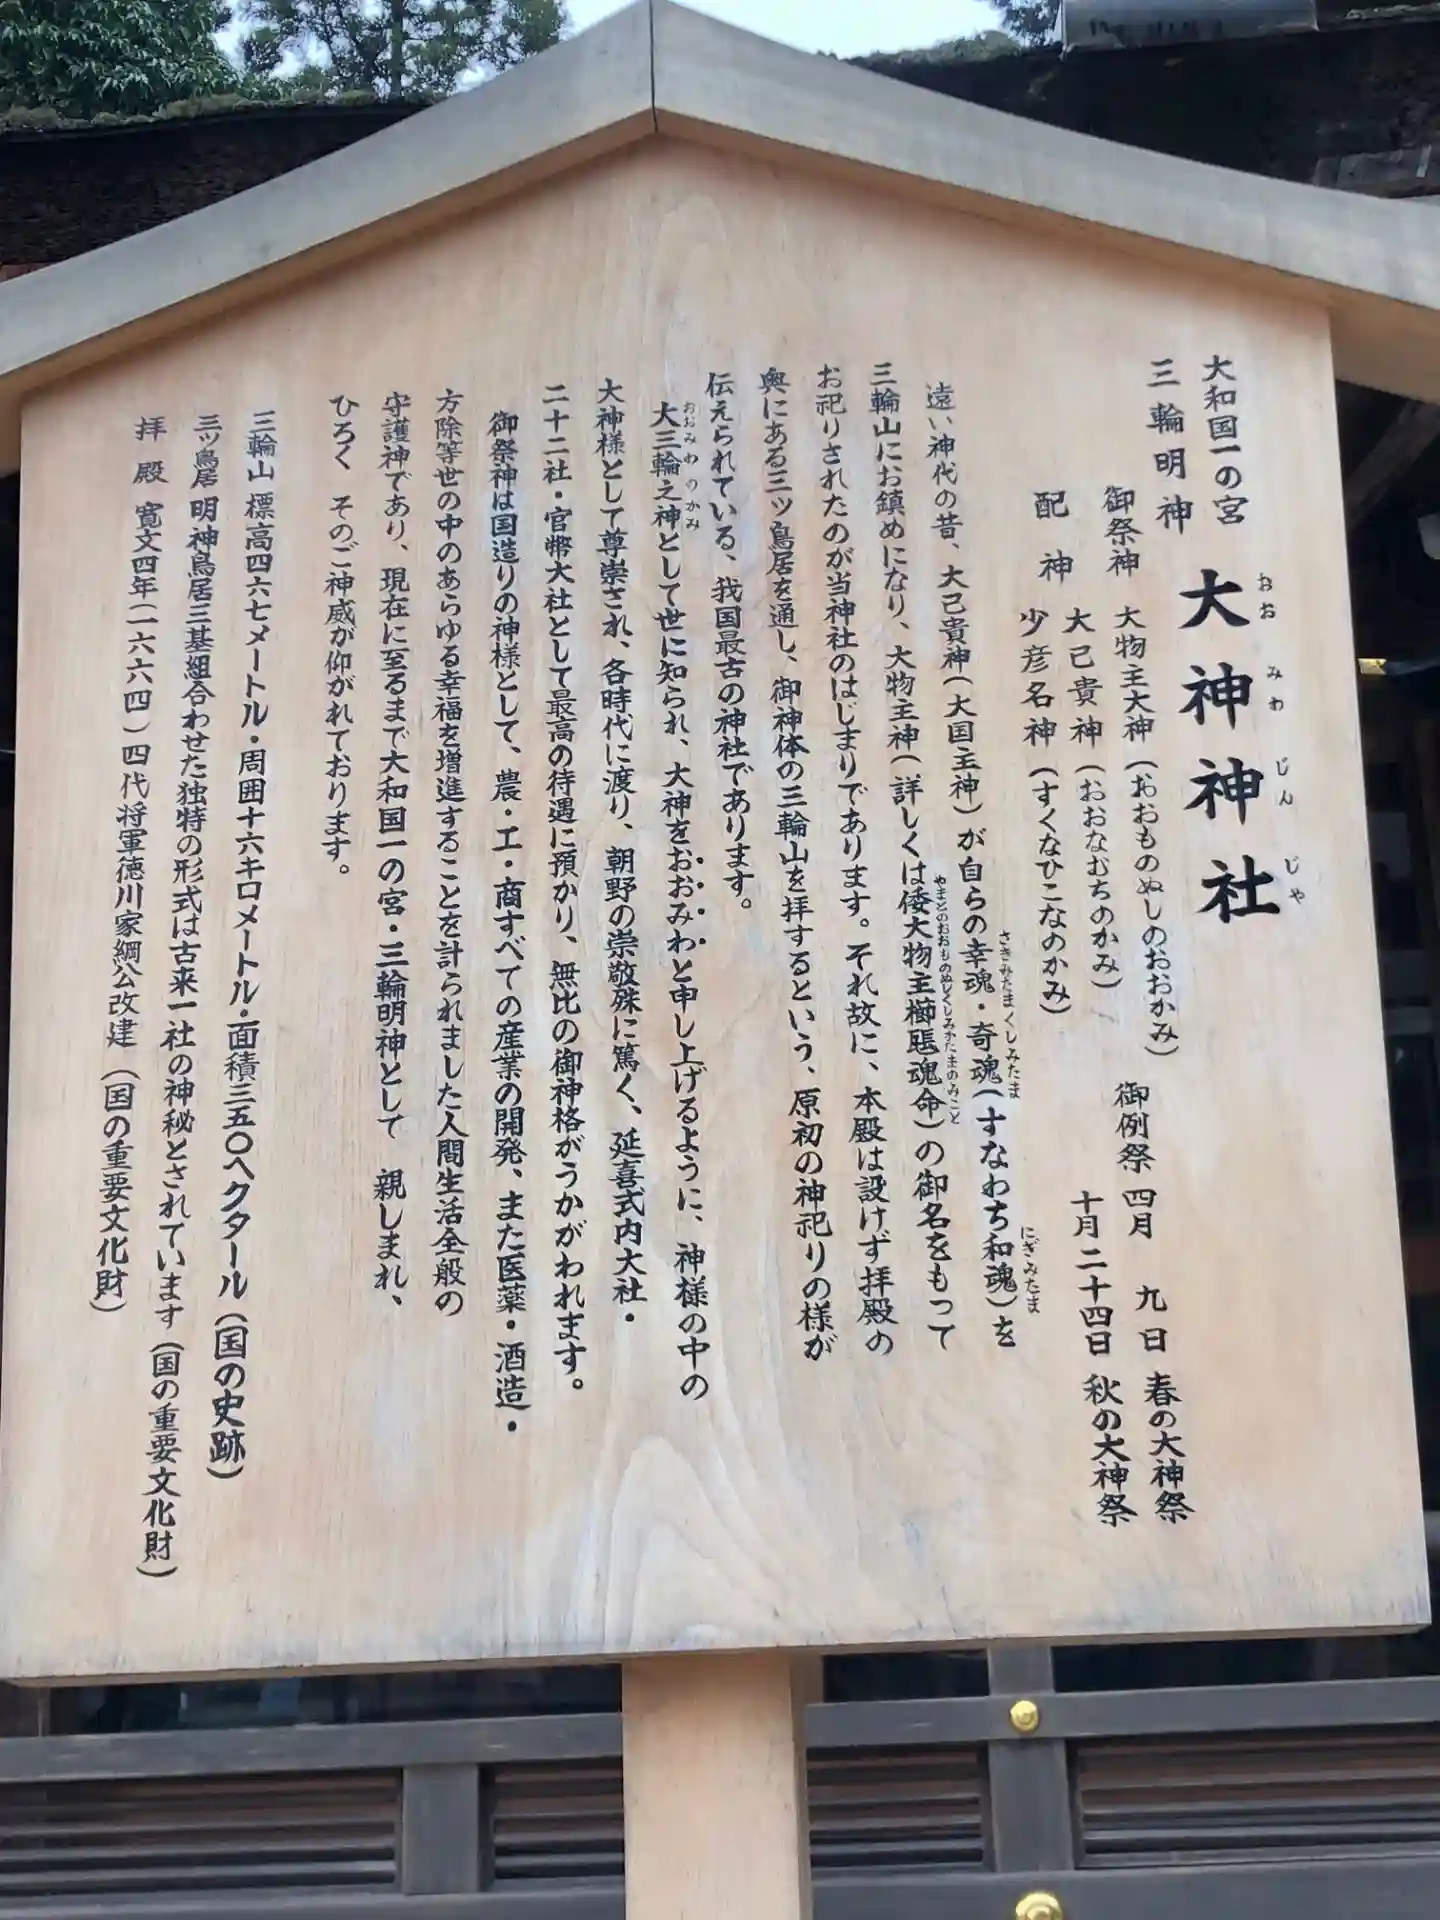 大和国一の宮
三輪明神
大神神社
おおみわじんじゃ
御祭神 大物主大神(おおものぬしのおおかみ)
大己貴神(おおなむちのかみ)
配神 少彦名神(すくなひこなのかみ)
御例祭 四月 九日 春の大神祭
十月二十四日 秋の大神祭
遠い神代の昔、大己貴神(大国主神)が自らの幸魂・奇魂(すなわち和魂)を
さきみたま くしみたま にぎみたま
三輪山にお鎮めになり、大物主神(詳しくは倭大物主櫛𤭖魂命)の御名をもって
やまとのおおものぬしくしみかたまのみこと
お祀りされたのが当神社のはじまりであります。それ故に、本殿は設けず拝殿の
奥にある三ッ鳥居を通し、御神体の三輪山を拝するという、原初の神祀りの様が
伝えられている、我国最古の神社であります。
大三輪之神として世に知られ、大神をおおみわと申し上げるように、神様の中の
おおみわのかみ
大神様として尊崇され、各時代に渡り、朝野の崇敬殊に篤く、延喜式内大社・
二十二社・官幣大社として最高の待遇に預かり、無比の御神格がうかがわれます。
御祭神は国造りの神様として、農・工・商すべての産業の開発、また医薬・酒造・
方除等世の中のあらゆる幸福を増進することを計られました人間生活全般の
守護神であり、現在に至るまで大和国一の宮・三輪明神として 親しまれ、
ひろく そのご神威が仰がれております。
三輪山 標高四六七メートル・周囲十六キロメートル・面積三五〇ヘクタール(国の史跡)
三ッ鳥居 明神鳥居三基組合わせた独特の形式は古来一社の神秘とされています(国の重要文化財)
拝殿 寛文四年(一六六四)四代将軍徳川家綱公改建(国の重要文化財)